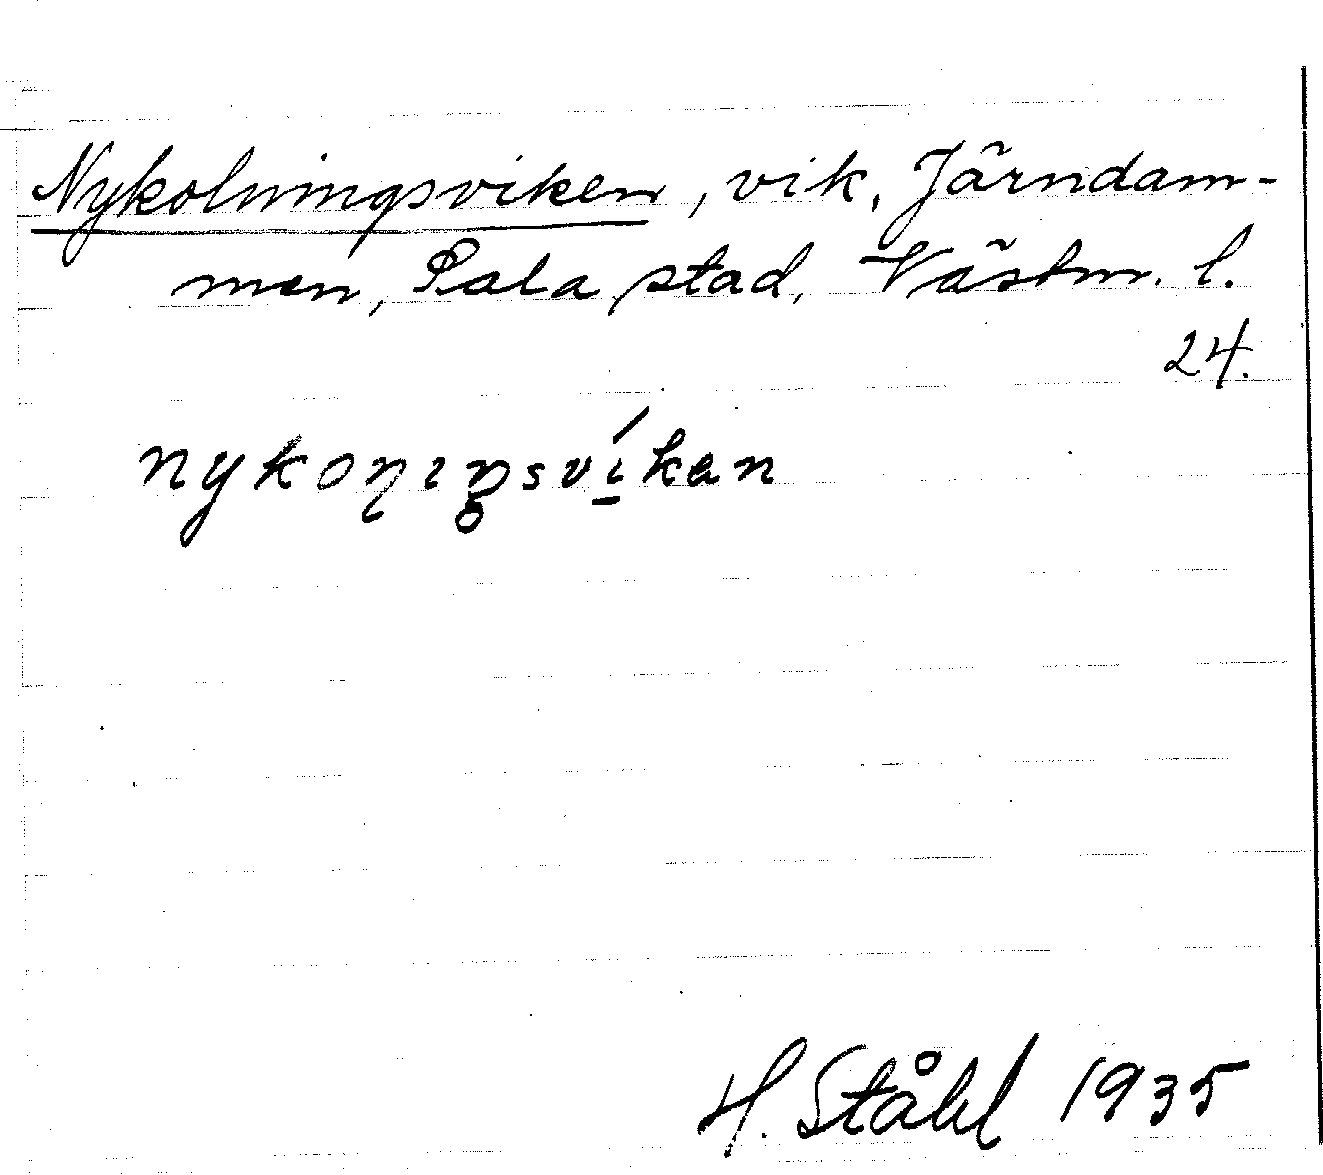 Nykolningsviken, vik, Järndam-
men, Sala stad, Västm. l.
24.
nykoɳɪŋ̥sví̱kən
H. Ståhl 1935